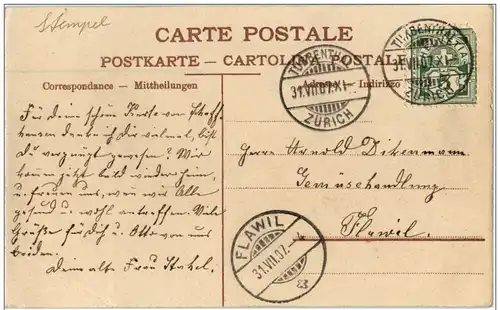 Stempel
CARTE POSTALE
POSTKARTE - CARTOLINA POSTALE
Correspondance - Mittheilungen
Adresse - Indirizzo
TURBENTHAL
31.VII.07.XI-
ZÜRICH
TURBENTHAL
31.VII.07.XI-
ZÜRICH
Für deine schöne Karte von Schaff-
hausen danke ich Dir vielmal, bist
Du vergnügt gewesen? Wir
kommen jetzt bald wieder heim,
u. freuen uns, wenn wir Alle
gesund u. wohl antreffen. Viele
Grüße für Dich u. Otto von uns
beiden.
Deine alte Frau
Herrn Arnold Dikenmann
Gemüsehandlung
Flawil.
FLAWIL
31.VII.07.-4